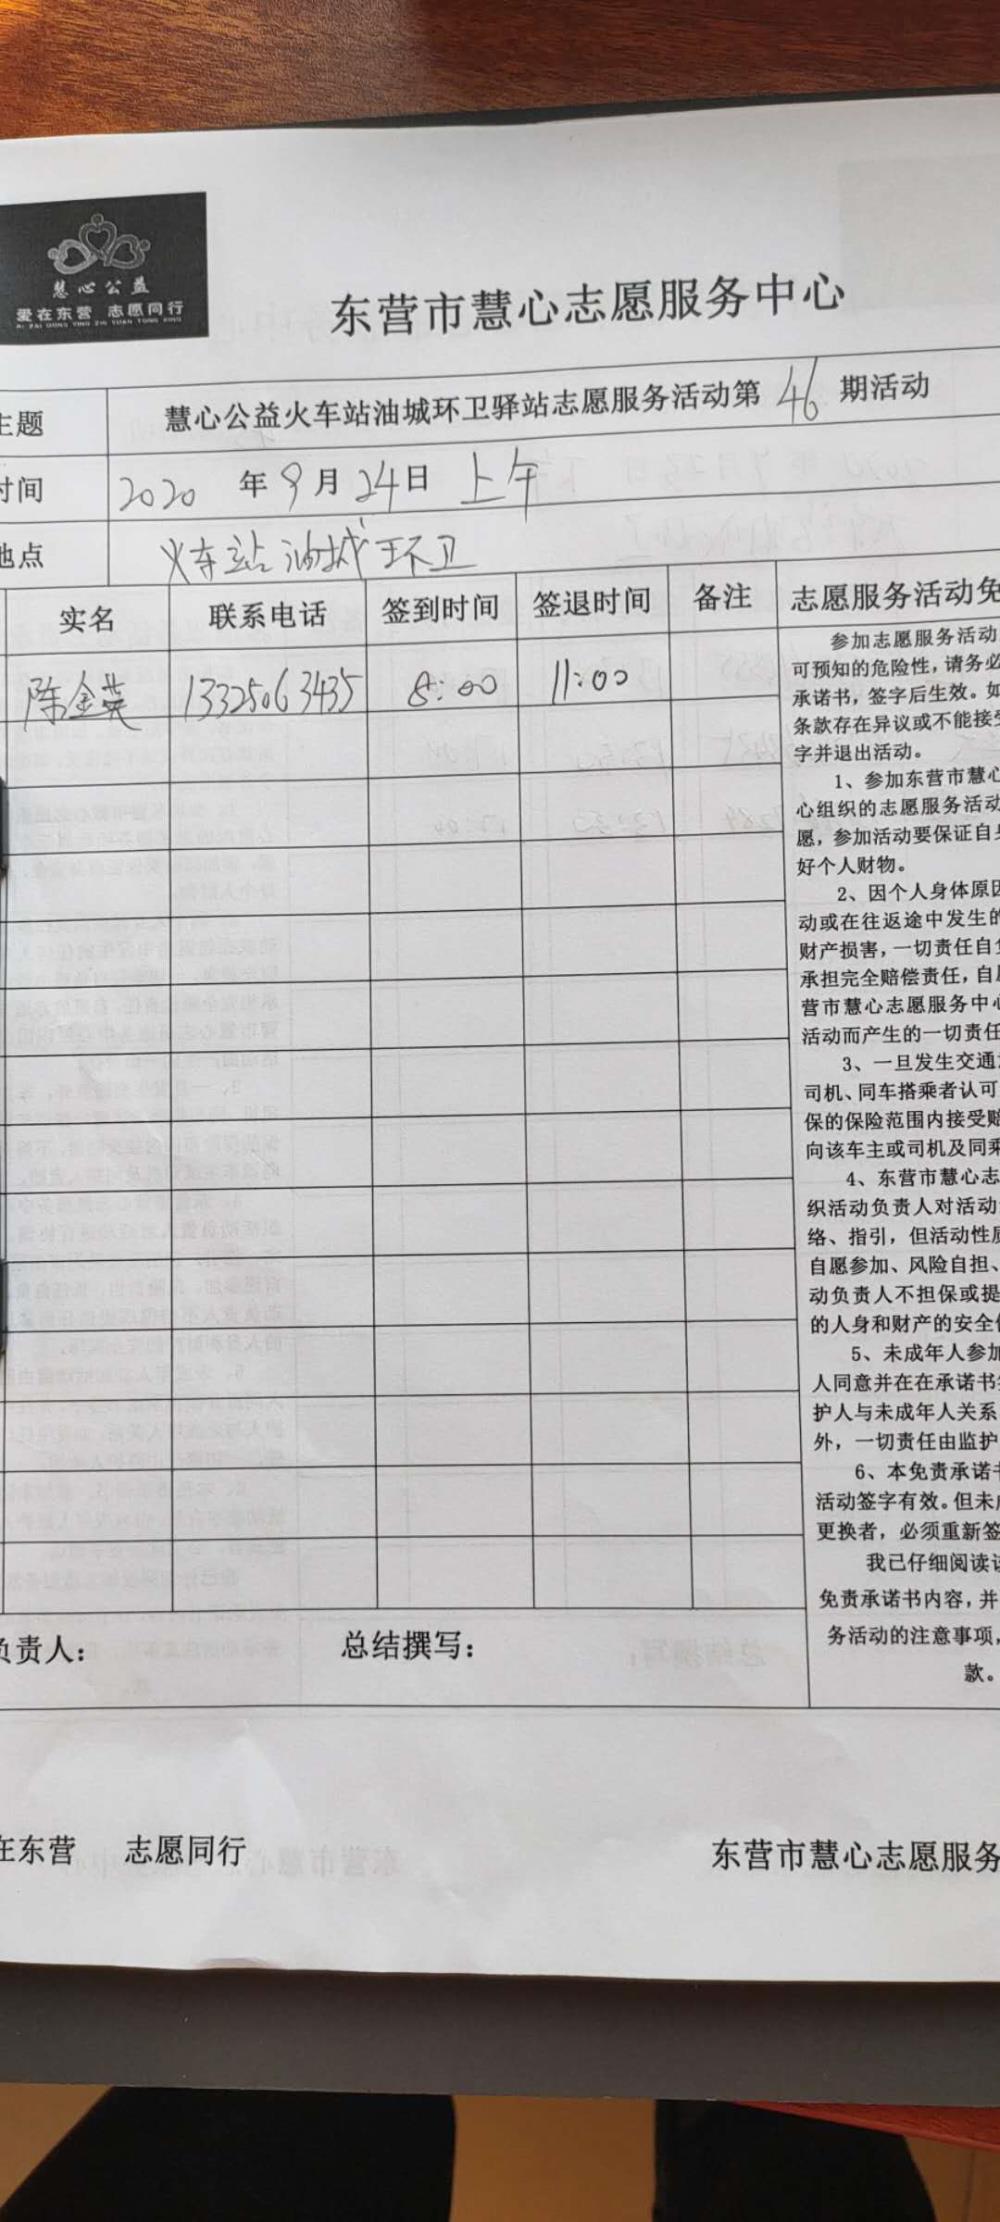 慧心公益
爱在东营 志愿同行
AI ZAI DONG YING ZHI YUAN TONG XING
东营市慧心志愿服务中心
主题 慧心公益火车站油城环卫驿站志愿服务活动第 46 期活动
时间 2020 年 9 月 24 日 上午
地点 火车站油城环卫
实名 联系电话 签到时间 签退时间 备注 志愿服务活动免
陈金英 13325063435 8:00 11:00
参加志愿服务活动
可预知的危险性,请务必
承诺书,签字后生效。如
条款存在异议或不能接受
字并退出活动。
1、参加东营市慧心
心组织的志愿服务活动
愿,参加活动要保证自身
好个人财物。
2、因个人身体原因
动或在往返途中发生的
财产损害,一切责任自负
承担完全赔偿责任,自愿
营市慧心志愿服务中心
活动而产生的一切责任
3、一旦发生交通
司机、同车搭乘者认可
保的保险范围内接受赔
向该车主或司机及同乘
4、东营市慧心志
织活动负责人对活动
络、指引,但活动性质
自愿参加、风险自担、
动负责人不担保或提
的人身和财产的安全
5、未成年人参加
人同意并在在承诺书
护人与未成年人关系
外,一切责任由监护
6、本免责承诺书
活动签字有效。但未
更换者,必须重新签
我已仔细阅读
免责承诺书内容,并
务活动的注意事项,
款。
负责人: 总结撰写:
在东营 志愿同行 东营市慧心志愿服务